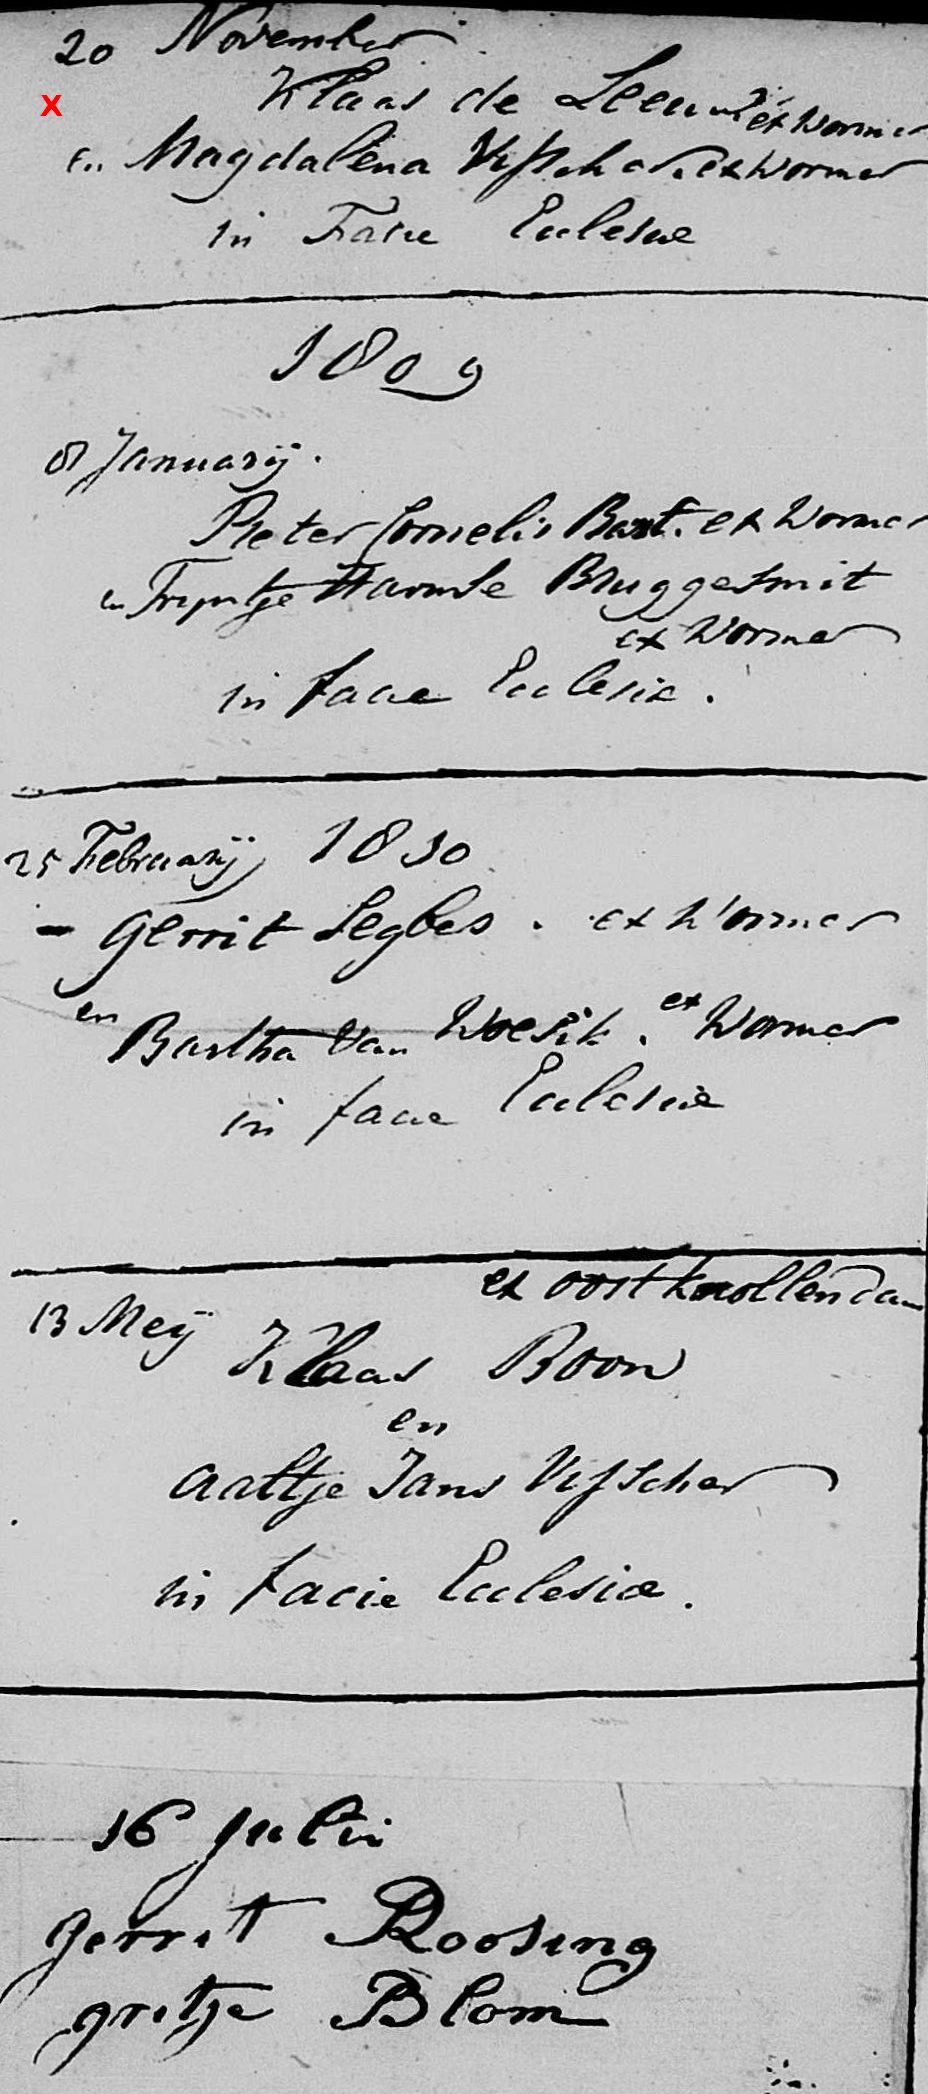 20 November
x Klaas de Leeuw ex Wormer
en Magdalena Visscher ex Wormer
in Facie Ecclesiæ
1809
8 Januarij.
Pieter Cornelis Bart. ex Wormer
en Tryntje Harmse Bruggesmit
ex Wormer
in facie Ecclesiæ.
25 Februarij 1810
- Gerrit Segbes. ex Wormer
en Bartha Van Woesik. ex Wormer
in facie Ecclesiæ
ex oostknollendam
13 Meij Klaas Boon
en
Aaltje Jans Visscher
in facie Ecclesiæ.
16 Julii
Gerrit Roosing
gritje Blom